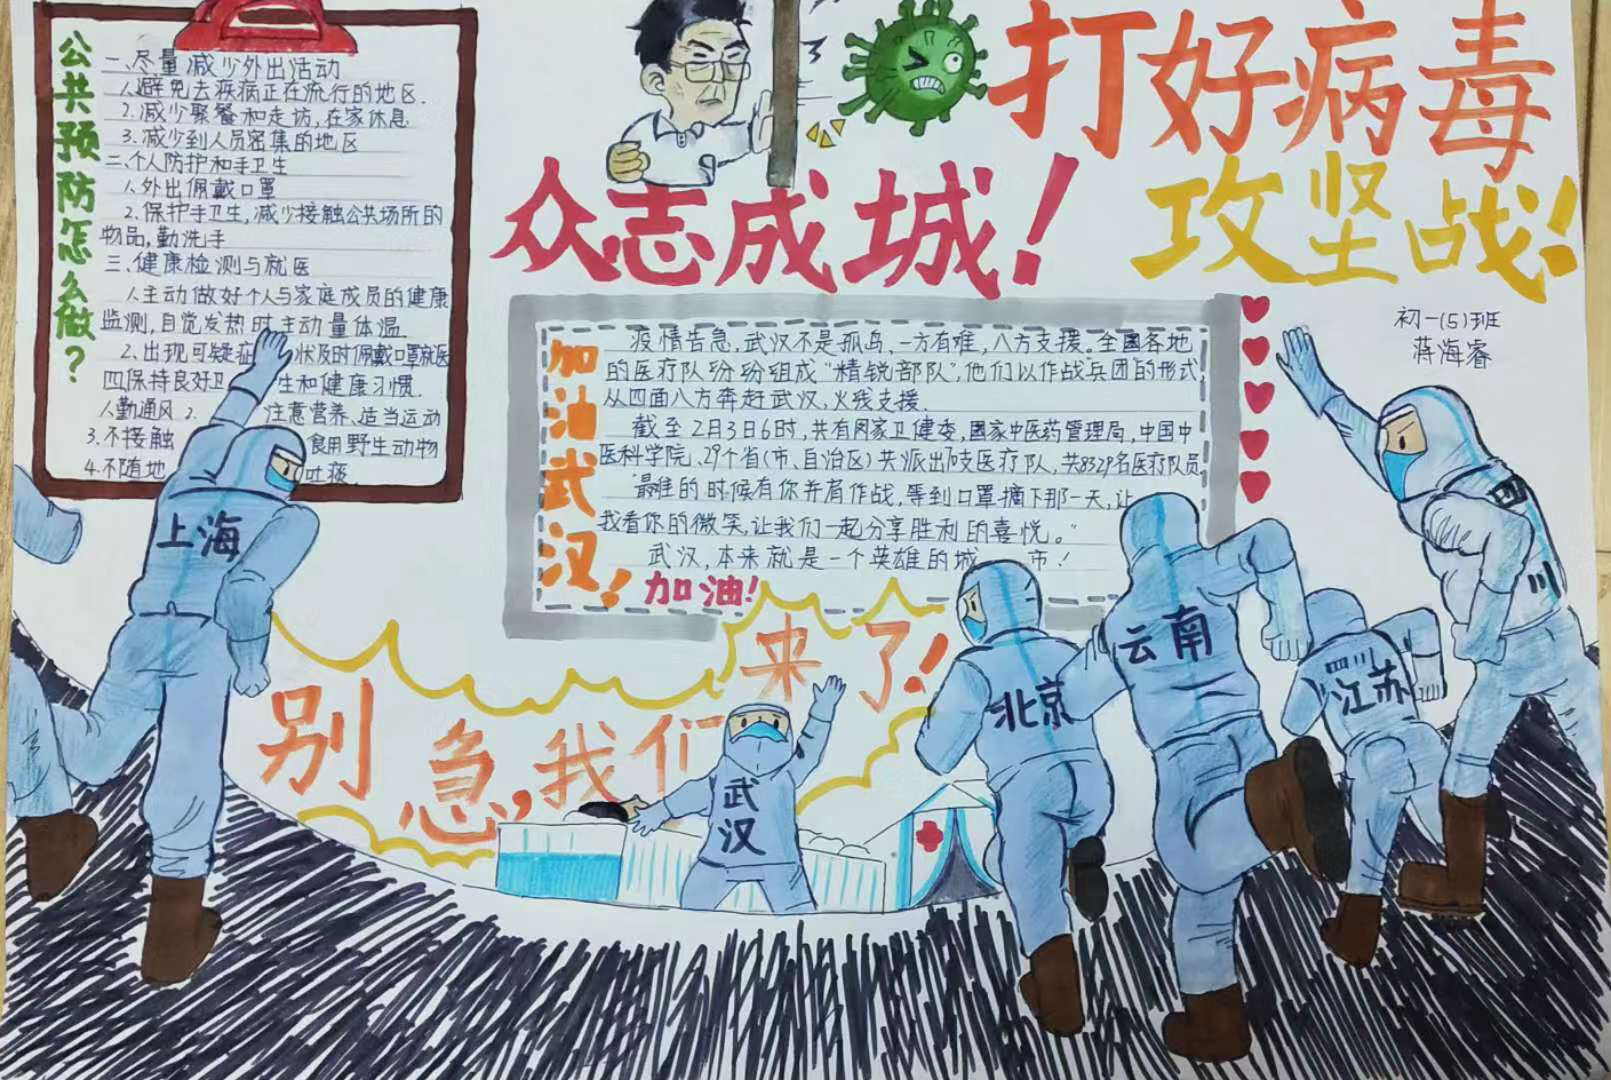 公共预防怎么做？
一、尽量减少外出活动
1.避免去疾病正在流行的地区.
2.减少聚餐和走访,在家休息
3.减少到人员密集的地区
二、个人防护和手卫生
1.外出佩戴口罩
2.保护手卫生,减少接触公共场所的
物品,勤洗手
三、健康检测与就医
1.主动做好个人与家庭成员的健康
监测,自觉发热时主动量体温.
2.出现可疑症状及时佩戴口罩就医
四.保持良好卫生和健康习惯.
1.勤通风 2.注意营养、适当运动
3.不接触 食用野生动物
4.不随地吐痰.
打好病毒
攻坚战!
众志成城!
初一(5)班
蒋海睿
加油武汉!
疫情告急,武汉不是孤岛,一方有难,八方支援。全国各地
的医疗队纷纷组成“精锐部队”,他们以作战兵团的形式
从四面八方奔赴武汉,火线支援.
截至2月3日6时,共有国家卫健委,国家中医药管理局,中国中
医科学院、29个省(市、自治区)共派出 支医疗队,共8329名医疗队员.
“最难的时候有你并肩作战,等到口罩摘下那一天,让
我看你的微笑,让我们一起分享胜利的喜悦。”
武汉,本来就是一个英雄的城市!
加油!
别急,我们来了!
上海
武汉
北京
云南
四川
江苏
四川